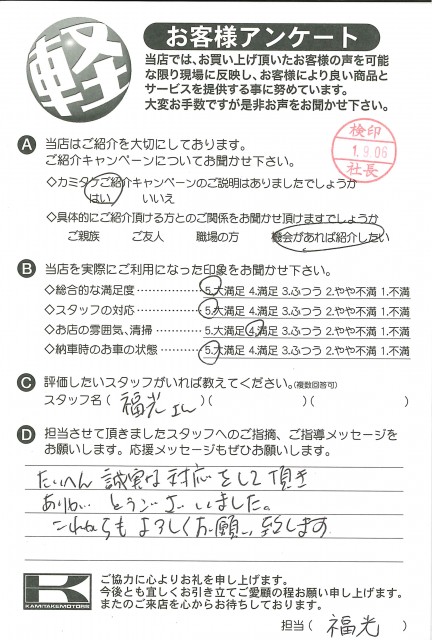 軽
お客様アンケート
当店では、お買い上げ頂いたお客様の声を可能
な限り現場に反映し、お客様により良い商品と
サービスを提供する事に努めています。
大変お手数ですが是非お声をお聞かせ下さい。
検印
1.9.06
社長
A 当店はご紹介を大切にしております。
ご紹介キャンペーンについてお聞かせ下さい。
◇カミタケご紹介キャンペーンのご説明はありましたでしょうか
はい いいえ
◇具体的にご紹介頂ける方とのご関係をお聞かせ頂けますでしょうか
ご親族 ご友人 職場の方 機会があれば紹介したい
B 当店を実際にご利用になった印象をお聞かせ下さい。
◇総合的な満足度 5.大満足 4.満足 3.ふつう 2.やや不満 1.不満
◇スタッフの対応 5.大満足 4.満足 3.ふつう 2.やや不満 1.不満
◇お店の雰囲気、清掃 5.大満足 4.満足 3.ふつう 2.やや不満 1.不満
◇納車時のお車の状態 5.大満足 4.満足 3.ふつう 2.やや不満 1.不満
C 評価したいスタッフがいれば教えてください。(複数回答可)
スタッフ名 ( 福光さん )( )( )
D 担当させて頂きましたスタッフへのご指摘、ご指導メッセージを
お願いします。応援メッセージもぜひお願いします。
たいへん誠実な対応をして頂き
ありがとうございました。
これからもよろしくお願い致します
K
KAMITAKE MOTORS
ご協力に心よりお礼を申し上げます。
今後とも宜しくお引き立てご愛顧の程お願い申し上げます。
またのご来店を心からお待ちしております。
担当 ( 福光 )